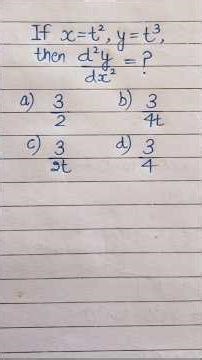 If x=t², y=t³,
then d²y/dx² = ?
a) 3/2 b) 3/4t
c) 3/2t d) 3/4